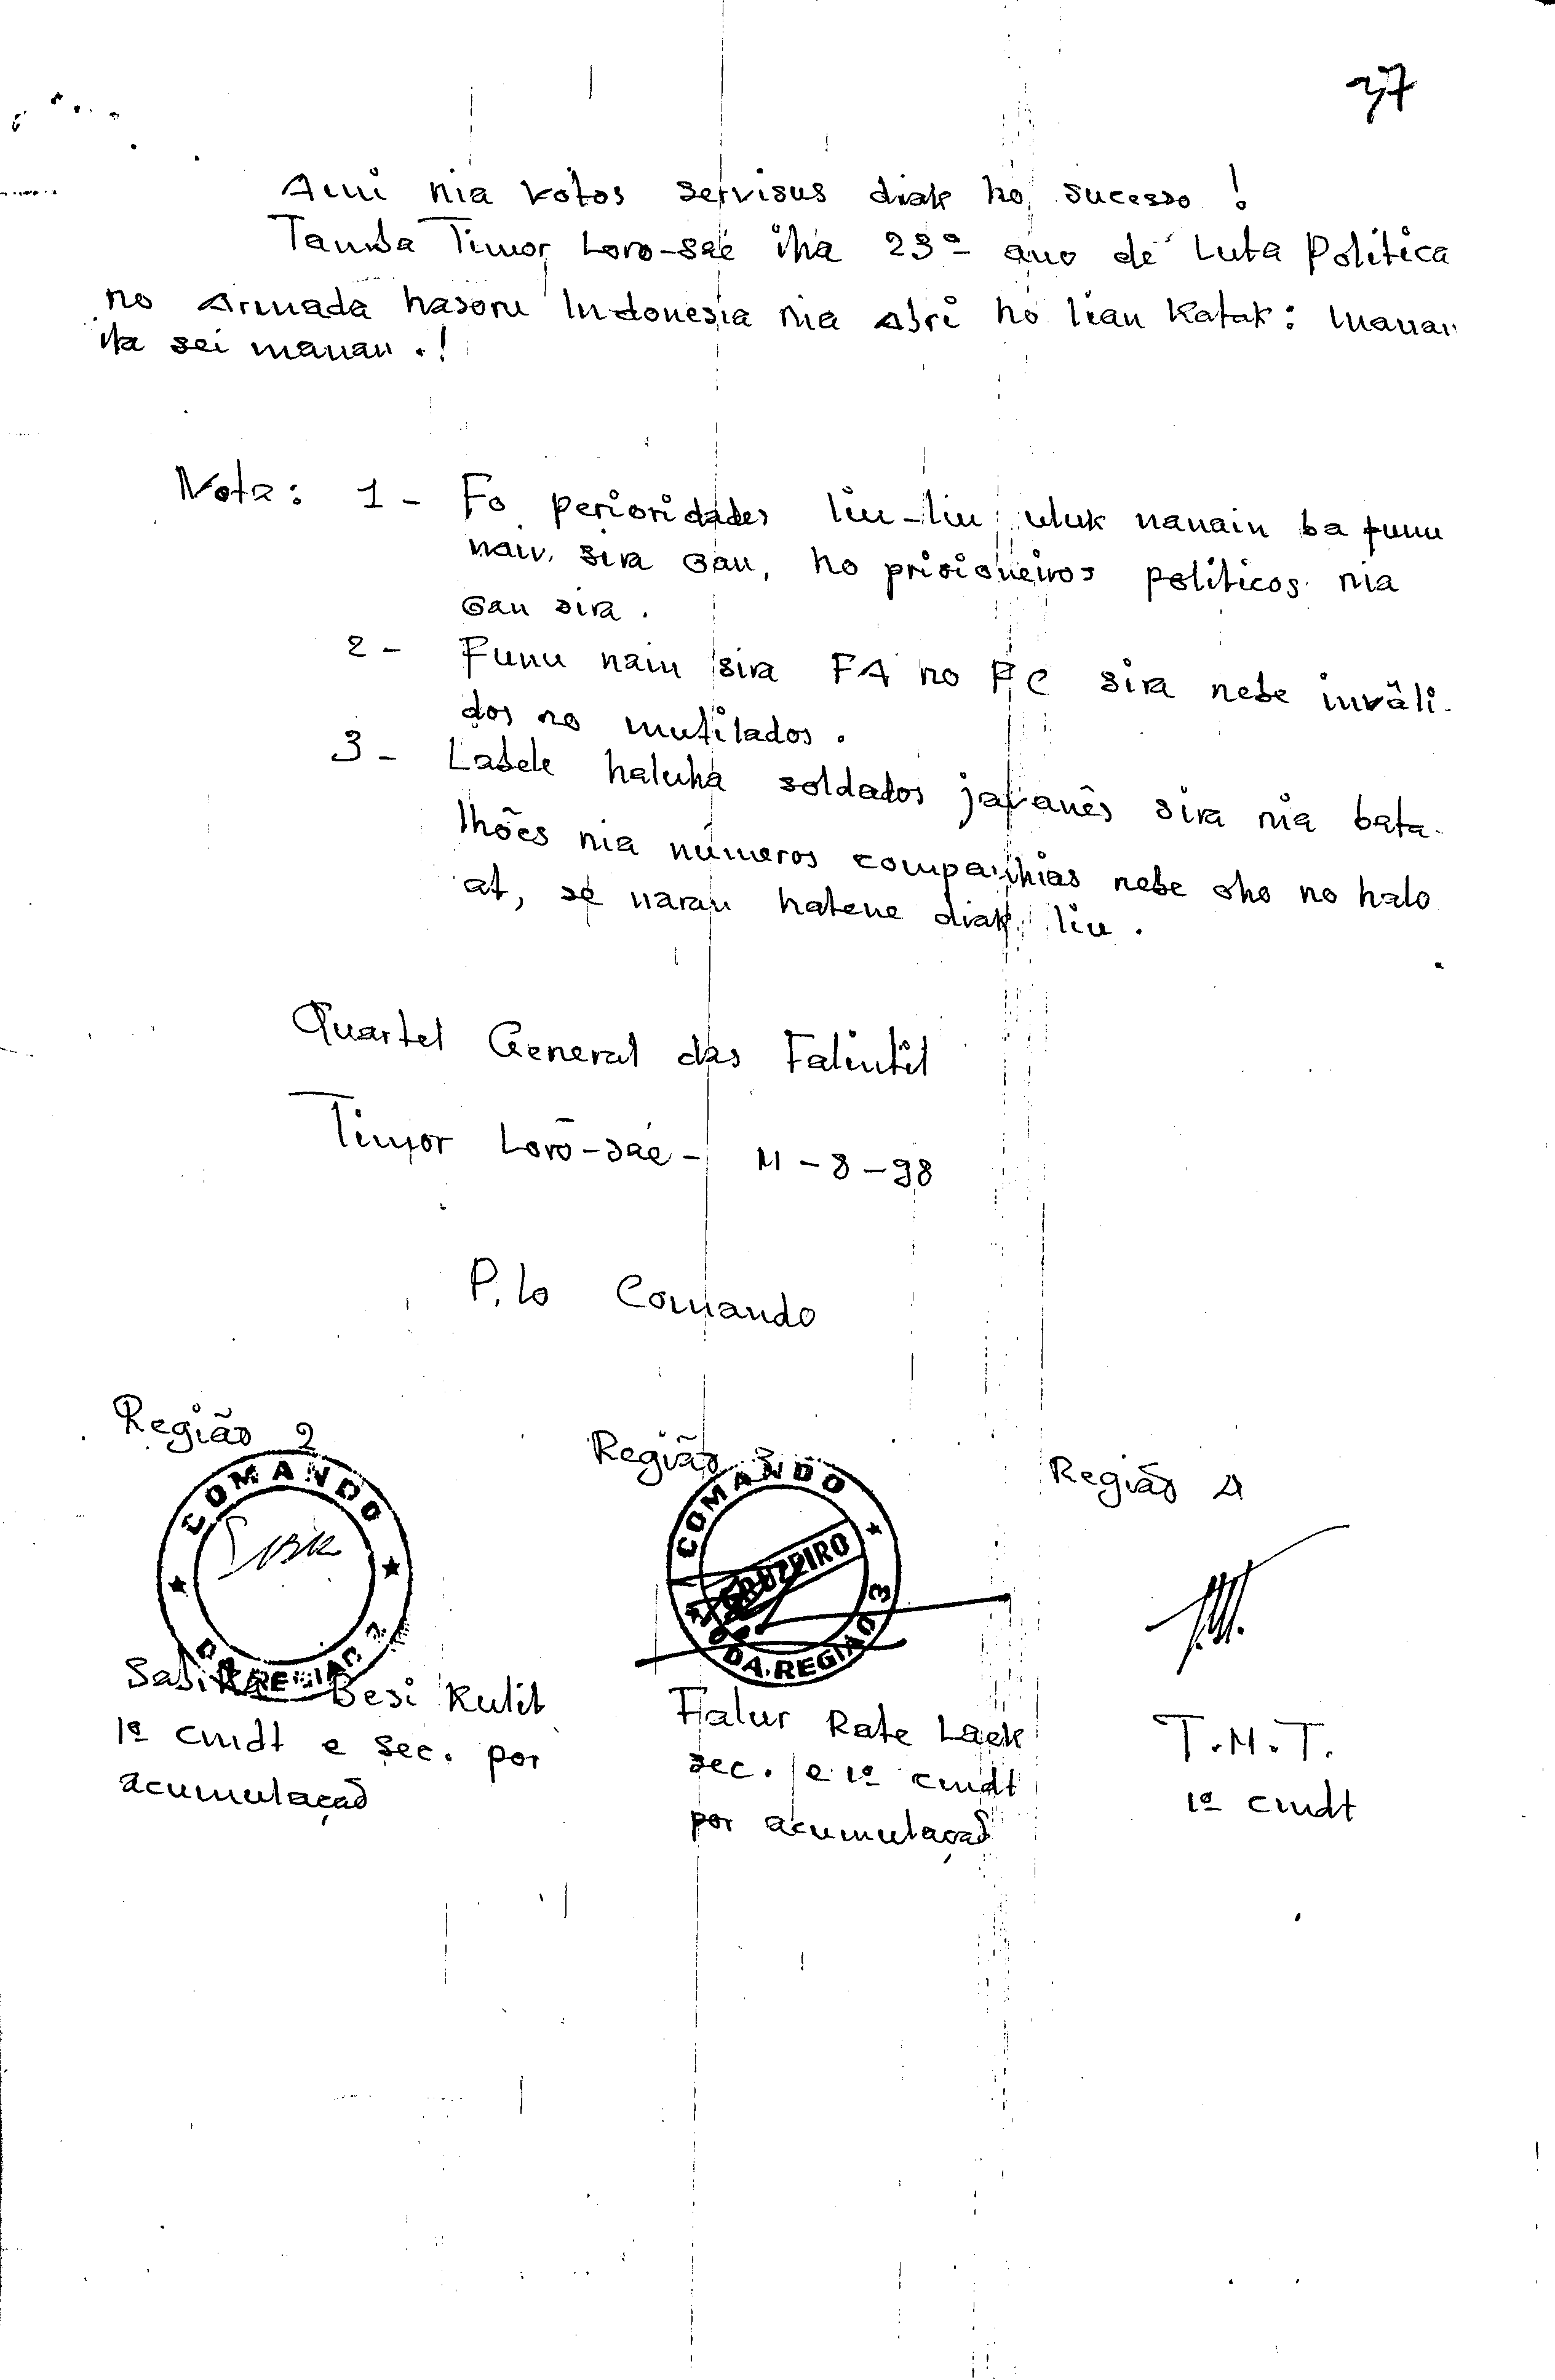 37
Ami nia votos servisus diak ho sucesso !
Tamba Timor Loro-saé iha 23º ano de Luta Politica
no Armada hasoru Indonesia nia Abri ho lian Katak: manan
ita sei manan.!
Nota: 1 - Fo perioridades liu-liu uluk nanain ba funu
nain sira oan, ho prisioneiros politicos nia
oan sira.
2 - Funu nain sira FA no FC sira nebe inváli-
dos no mutilados.
3 - Labele haluha soldados javanês sira nia bata-
lhões nia números companhias nebe oho no halo
at, se naran hatene diak liu.
Quartel General das Falintil
Timor Loro-sae - 11-8-98
P.lo Comando
Região 2
Região 3
Região 4
COMANDO
DA REGIAO 2
COMANDO
CRUZEIRO
DA REGIÃO 3
Sabika Besi Kulit
1º cmdt e sec. por
acumulação
Falur Rate Laek
sec. e 1º cmdt
por acumulação
T.M.T.
1º cmdt